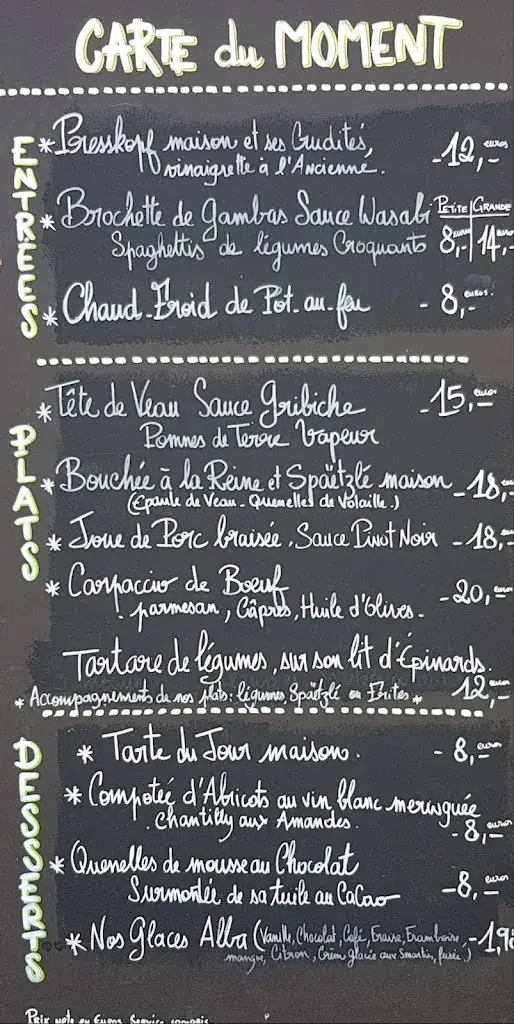 CARTE du MOMENT
ENTREES
* Presskopf maison et ses Crudités, - 12,- euros
vinaigrette à l'Ancienne.
PETITE | GRANDE
* Brochette de Gambas Sauce Wasabi
Spaghettis de légumes Croquants 8,- euros | 14,- euros
* Chaud-Froid de Pot-au-feu - 8,- euros.
PLATS
* Tête de Veau Sauce Gribiche - 15,- euros
Pommes de Terre Vapeur
* Bouchée à la Reine et Spaëtzlé maison - 18,- euros
(Epaule de Veau - Quenelles de Volaille.)
* Joue de Porc braisée, Sauce Pinot Noir - 18,-
* Carpaccio de Boeuf - 20,- euros
parmesan, Câpres, Huile d'Olives.
Tartare de légumes, sur son lit d'Épinards.
* Accompagnements de nos plats: légumes, Spaëtzlé ou Frites * 12,- euros
DESSSERTS
* Tarte du Jour maison. - 8,- euros
* Compotée d'Abricots au vin blanc meringuée
. Chantilly aux Amandes. - 8,- euros
* Quenelles de mousse au Chocolat
Surmontée de sa tuile au CaCao - 8,- euros
* Nos Glaces Alba (Vanille, Chocolat, Café, Fraise, Framboise, - 1,9
mangue, Citron, Crèm glacée aux Smarties, fusée.)
Prix nets en Euros Service compris